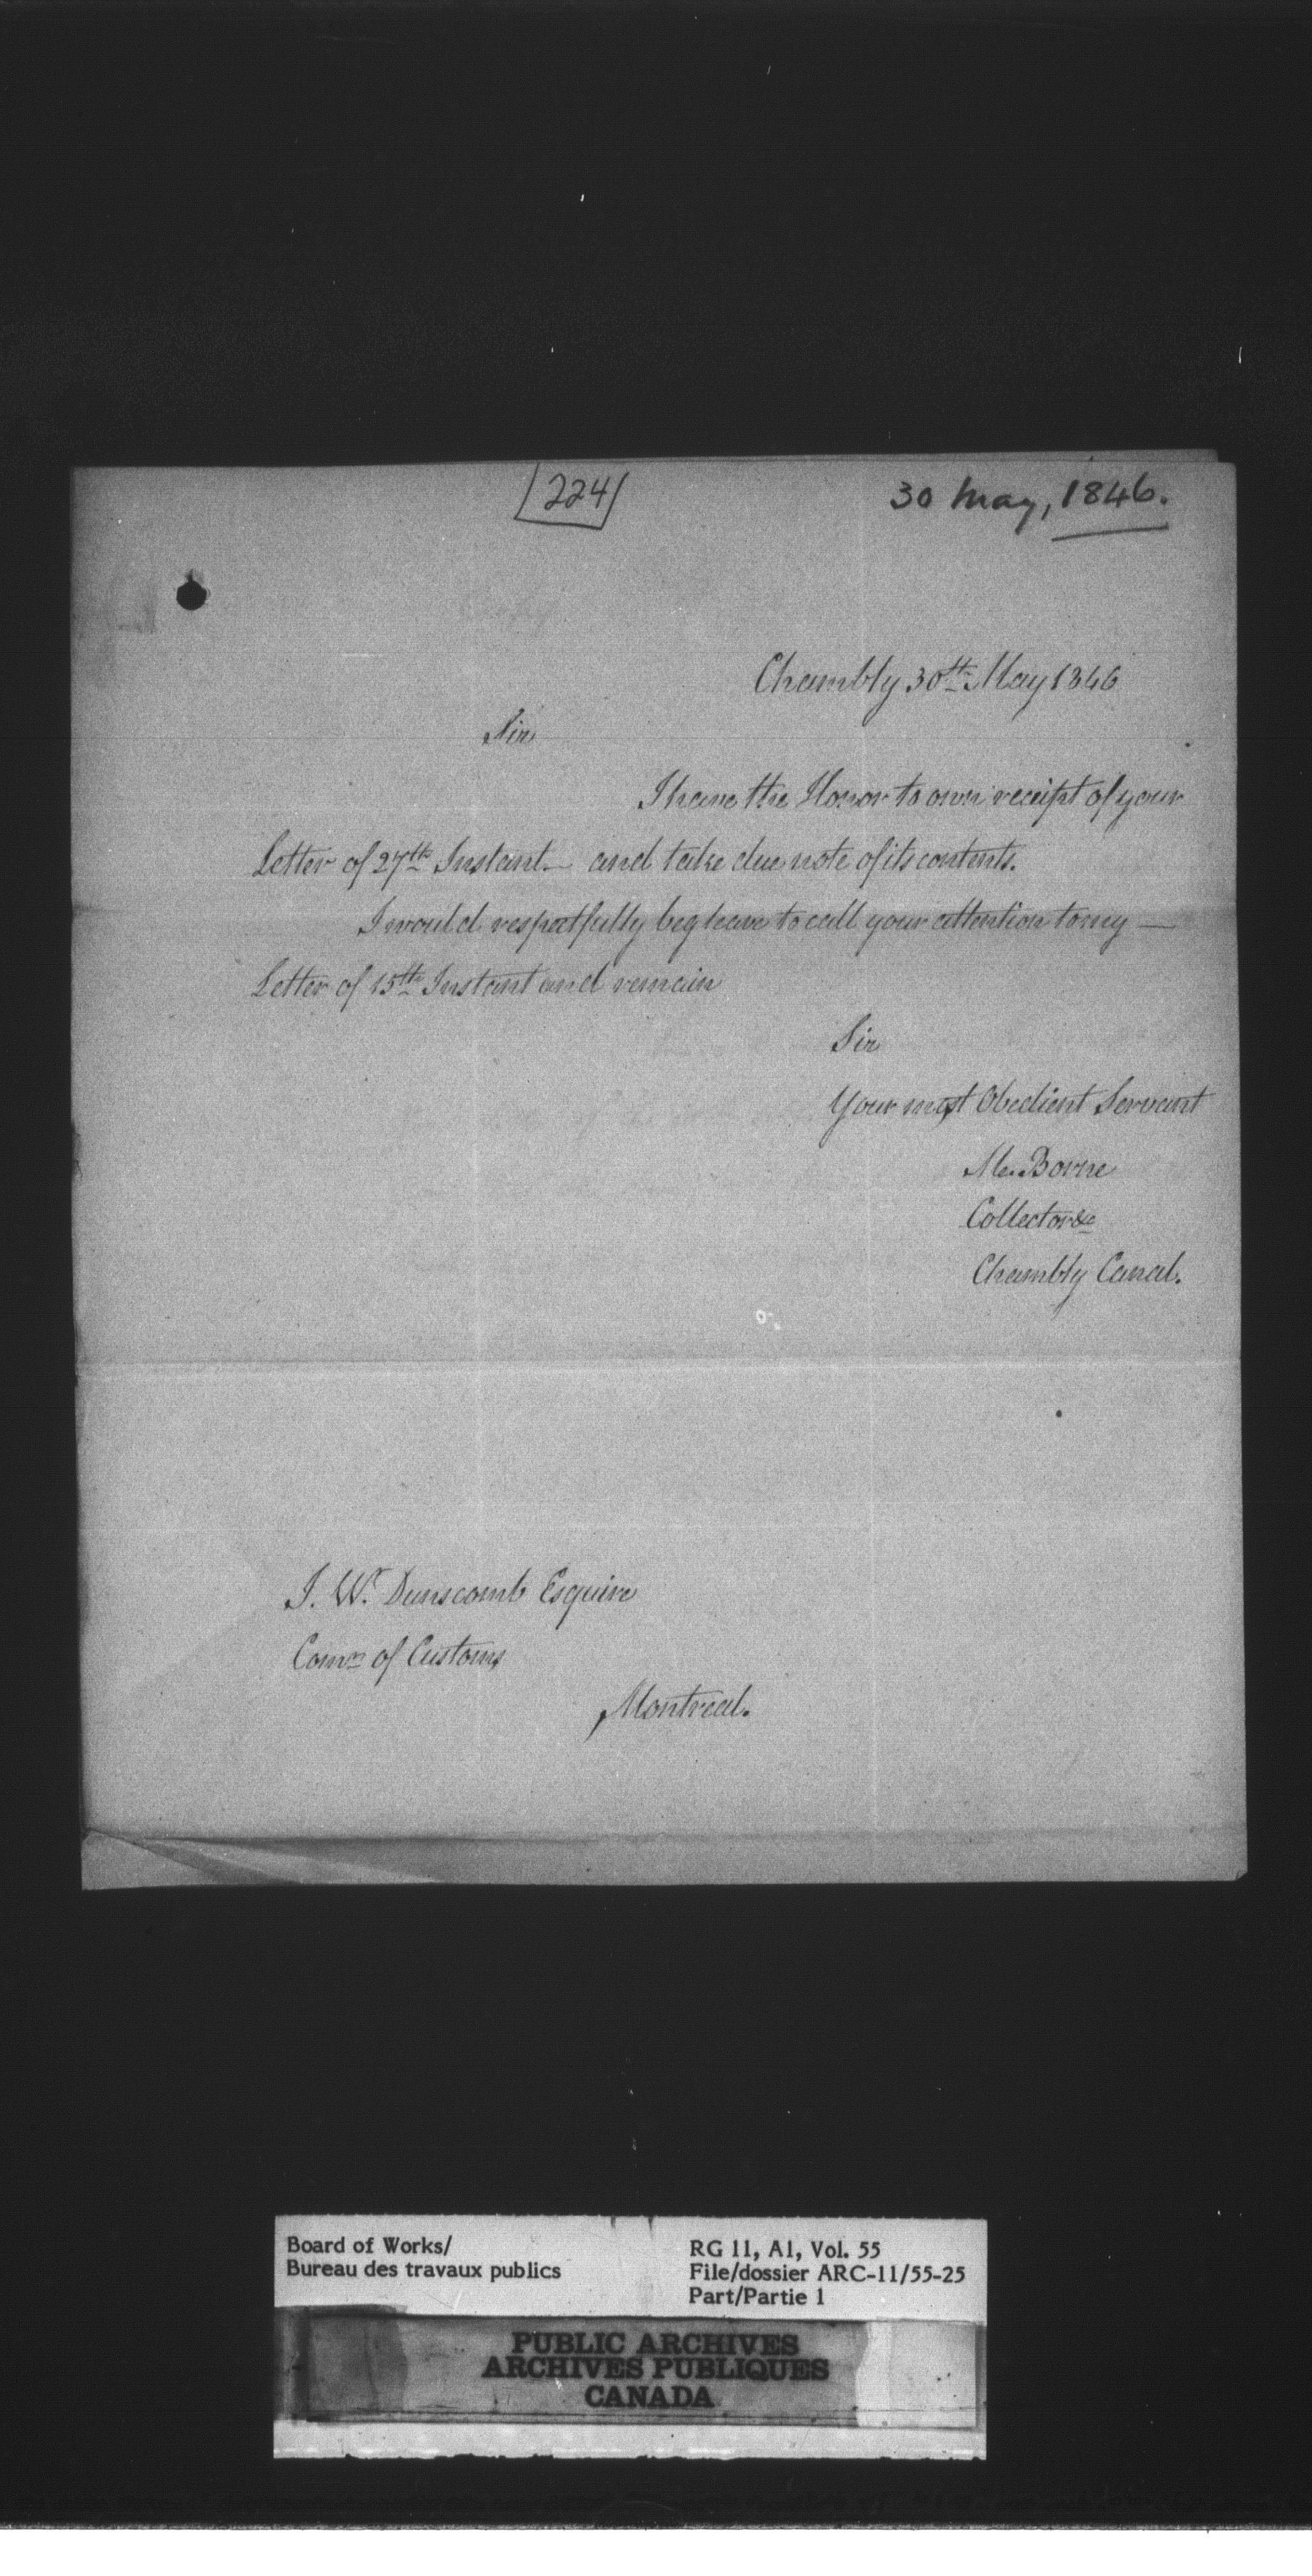 224
30 May, 1846.
Chambly 30th May 1846
Sir
I have the Honor to own receipt of your
Letter of 27th Instant — and take due note of its contents.
I would respectfully beg leave to call your attention to my —
Letter of 15th Instant and remain
Sir
Your most Obedient Servant
M. Borne
Collector &c
Chambly Canal.
J. W. Dunscomb Esquire
Comr of Customs
Montreal.
Board of Works/
Bureau des travaux publics
RG 11, A1, Vol. 55
File/dossier ARC-11/55-25
Part/Partie 1
PUBLIC ARCHIVES
ARCHIVES PUBLIQUES
CANADA